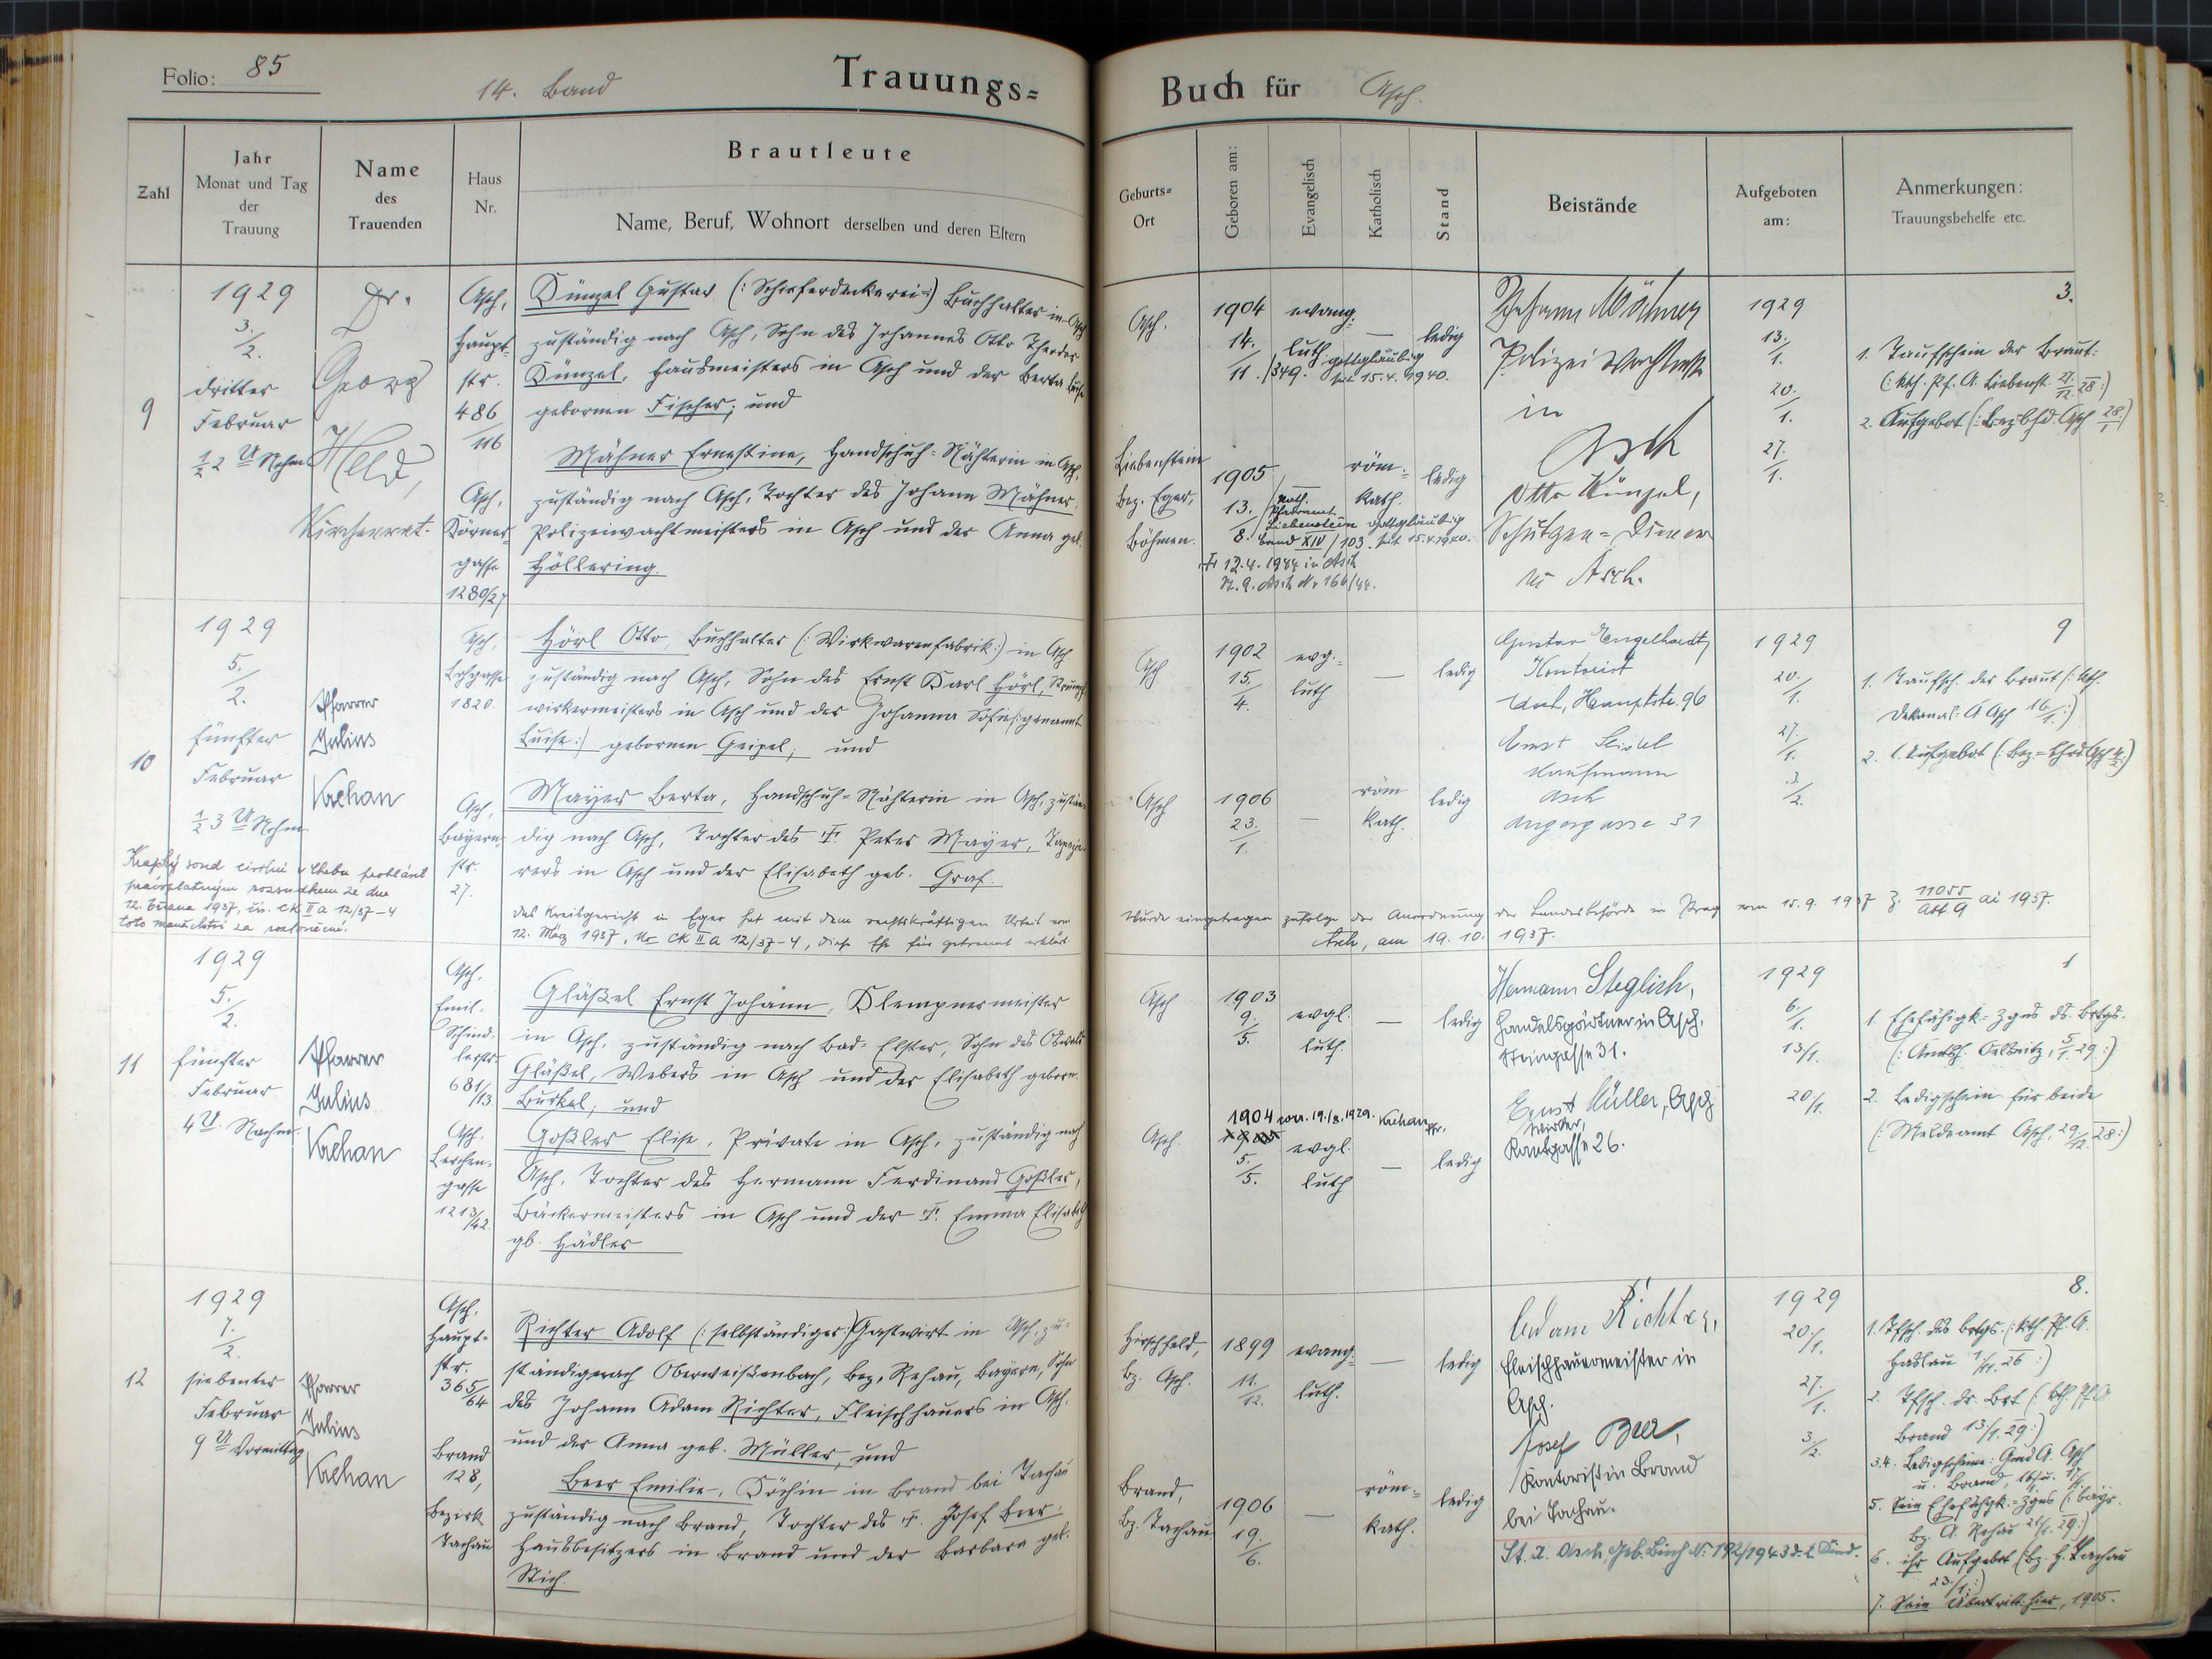 Folio: 85
14. Band
Trauungs=
Buch für Asch.
Zahl
Jahr
Monat und Tag
der
Trauung
Name
des
Trauenden
Haus
Nr.
Brautleute
Name, Beruf, Wohnort derselben und deren Eltern
Geburts=
Ort
Geboren am:
Evangelisch
Katholisch
Stand
Beistände
Aufgeboten
am:
Anmerkungen:
Trauungsbehelfe etc.
9
1929
3./2.
dritter
Februar
½ 2 U Nchm
Dr.
Georg
Held,
Kirchenrat.
Asch,
Haupt-
str.
486
/116
Künzel Gustav (: Schieferdeckerei :) Buchhalter in Asch
zuständig nach Asch, Sohn des Johannes Otto Theodor
Künzel, Hausmeisters in Asch und der Berta Luise
gebornen Fischer; und
Asch,
Körner-
gasse
1280/27
Mähner Ernestine, Handschuh-Nähterin in Asch,
zuständig nach Asch, Tochter des Johann Mähner,
Polizeiwachtmeisters in Asch und der Anna geb.
Höllering.
Asch.
1904
14.
11. /349.
evang.
luth. gottgläubig
seit 15.4.1940.
—
ledig
Liebenstein
Bez. Eger,
Böhmen.
1905
13./8.
Kath.
Pfarramt
Liebenstein
Band XIV/103.
röm.=
kath.
gottgläubig
seit 15.4.1940.
ledig
† 12.4.1944 in Asch
St. A. Asch Nr 166/44.
Johann Mähner
Polizei Wachtmstr
in
Asch
Otto Künzel,
Schulgen-Diener
in Asch.
1929
13./1.
20./1.
27./1.
3.
1. Taufschein der Braut:
(: kth. Pf. A. Liebenst. 27./12. 28 :)
2. Aufgebot (: Bezbhd. Asch 28./1 :)
10
1929
5./2.
fünfter
Februar
½ 3 U Nchm
Pfarrer
Julius
Krehan
Asch,
Lohgasse
1820.
Hörl Otto, Buchhalter (: Wirkwarenfabrik :) in Asch
zuständig nach Asch, Sohn des Ernst Karl Hörl, Strumpf-
wirkermeisters in Asch und der Johanna Sofie (: genannt
Luise :) gebornen Geipel; und
Asch,
Bayern-
str.
27.
Mayer Berta, Handschuh-Nähterin in Asch, zustän-
dig nach Asch, Tochter des †. Peter Mayer, Tapezie-
rers in Asch und der Elisabeth geb. Graf.
Krajský soud civilní v Chebu prohlásil
právoplatným rozsudkem ze dne
12. března 1937, čís. CK II a 12/37-4
toto manželství za rozloučené.
Das Kreisgericht in Eger hat mit dem rechtskräftigen Urteil vom
12. März 1937, Nr CK II a 12/37-4, diese Ehe für getrennt erklärt.
Wurde eingetragen zufolge der Anordnung der Landesbehörde in Prag vom 15.9.1937 Z. 11055/Abt. 9 ai 1937.
Asch, am 19.10.1937.
Asch
1902
15./4.
evg.=
luth
—
ledig
Asch
1906
23./1.
—
röm
kath.
ledig
Gustav Engelhardt,
Kontorist
Asch, Hauptstr. 96
Ernst
Kaufmann
Asch
Angergasse 31
1929
20./1.
27./1.
3./2.
9
1. Taufsch. der Braut (: kth.
Dekanal-A Asch 16/1. :)
2. Aufgebot (: Bez.=bhrd Asch 4/2 :)
11
1929
5./2.
fünfter
Februar
4 U. Nachm.
Pfarrer
Julius
Krehan
Asch.
Emil-
Schind-
lerstr.
681/13
Gläßel Ernst Johann, Klempnermeister
in Asch, zuständig nach Bad-Elster, Sohn des Oswald
Gläßel, Webers in Asch und der Elisabeth geborn.
Burkel, und
Asch.
Lerchen-
gasse
1213/42
Goßler Elise, Private in Asch, zuständig nach
Asch, Tochter des Hermann Ferdinand Goßler,
Bäckermeisters in Asch und der †. Emma Elisabeth
gb. Hädler
Asch
1903
9./5.
evgl.
luth.
—
ledig
Asch.
1904 corr. 19./8.1929. Krehan Pfr.
5./5.
evgl.
luth
—
ledig
Hermann Steglich,
Handelsgärtner in Asch,
Steingasse 31.
Ernst Müller, Asch
Wirker,
Kantgasse 26.
1929
6./1.
13/1.
20/1.
1
1. Ehefähigk.=Zgns ds. Brtgs.
(: Amtsh. Oelsnitz, 5/1. 29 :)
2. Ledigschein für beide
(: Meldeamt Asch, 29/12. 28 :)
12
1929
7./2.
siebenter
Februar
9 U Vormittag
Pfarrer
Julius
Krehan
Asch.
Haupt-
str.
365/64
Richter Adolf (: selbständiger :) Gastwirt in Asch, zu-
ständig nach Oberweißenbach, Bez. Rehau, Bayern, Sohn
des Johann Adam Richter, Fleischhauers in Asch,
und der Anna geb. Müller, und
Brand
128,
Bezirk
Tachau
Beer Emilie, Köchin in Brand bei Tachau
zuständig nach Brand, Tochter des †. Josef Beer
Hausbesitzers in Brand und der Barbara geb.
Stich.
Hirschfeld,
bz. Asch.
1899
11./12.
evang.=
luth.
—
ledig
Brand,
Bz. Tachau
1906
19./6.
—
röm=
kath.
ledig
Adam Richter,
Fleischhauermeister in
Asch.
Josef Beer,
Kontorist in Brand
bei Tachau.
St. A. Asch, Geb. Buch Nr. 192/1943 d. 2. Kind.
1929
20./1.
27./1.
3/2.
8.
1. Tfsch. des Brtgs. (: kth. Pf. A.
Haslau 1/11. 26 :)
2. Tfsch. dr. Brt (: kth. Pf. A
Brand 13/1. 29 :)
3.4. Ledigscheine: Gmd A. Asch
u. Brand, 16/1 u. 17/1.
5. Sein Ehefähgk.=Zgns (: bayr.
bz. A. Rehau 26/1. 29 :)
6. ihr Aufgebot (: bz. h. Tachau
23./1. :)
7. Sein Übertritt: hier, 1905.